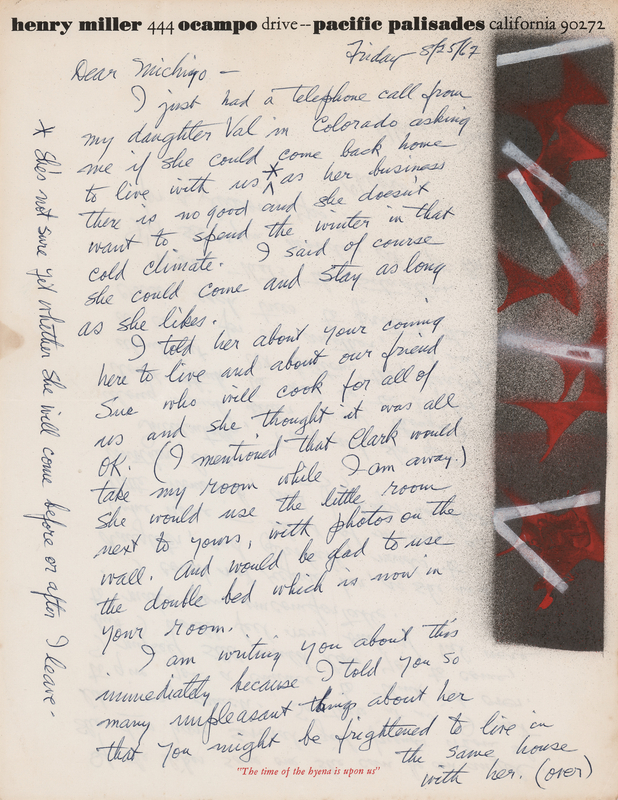 henry miller 444 ocampo drive -- pacific palisades california 90272
Friday - 8/25/67
Dear Michiyo -
I just had a telephone call from
my daughter Val in Colorado asking
me if she could come back home
to live with us * as her business
there is no good and she doesn't
want to spend the winter in that
cold climate. I said of course
she could come and stay as long
as she likes.
I told her about your coming
here to live and about our friend
Sue who will cook for all of
us and she thought it was all
OK. (I mentioned that Clark would
take my room while I am away.)
She would use the little room
next to yours, with photos on the
wall. And would be glad to use
the double bed which is now in
your room.
I am writing you about this
immediately because I told you so
many unpleasant things about her
that you might be frightened to live in
the same house
with her. (over)
* She's not sure yet whether she will come before or after I leave -
"The time of the hyena is upon us"